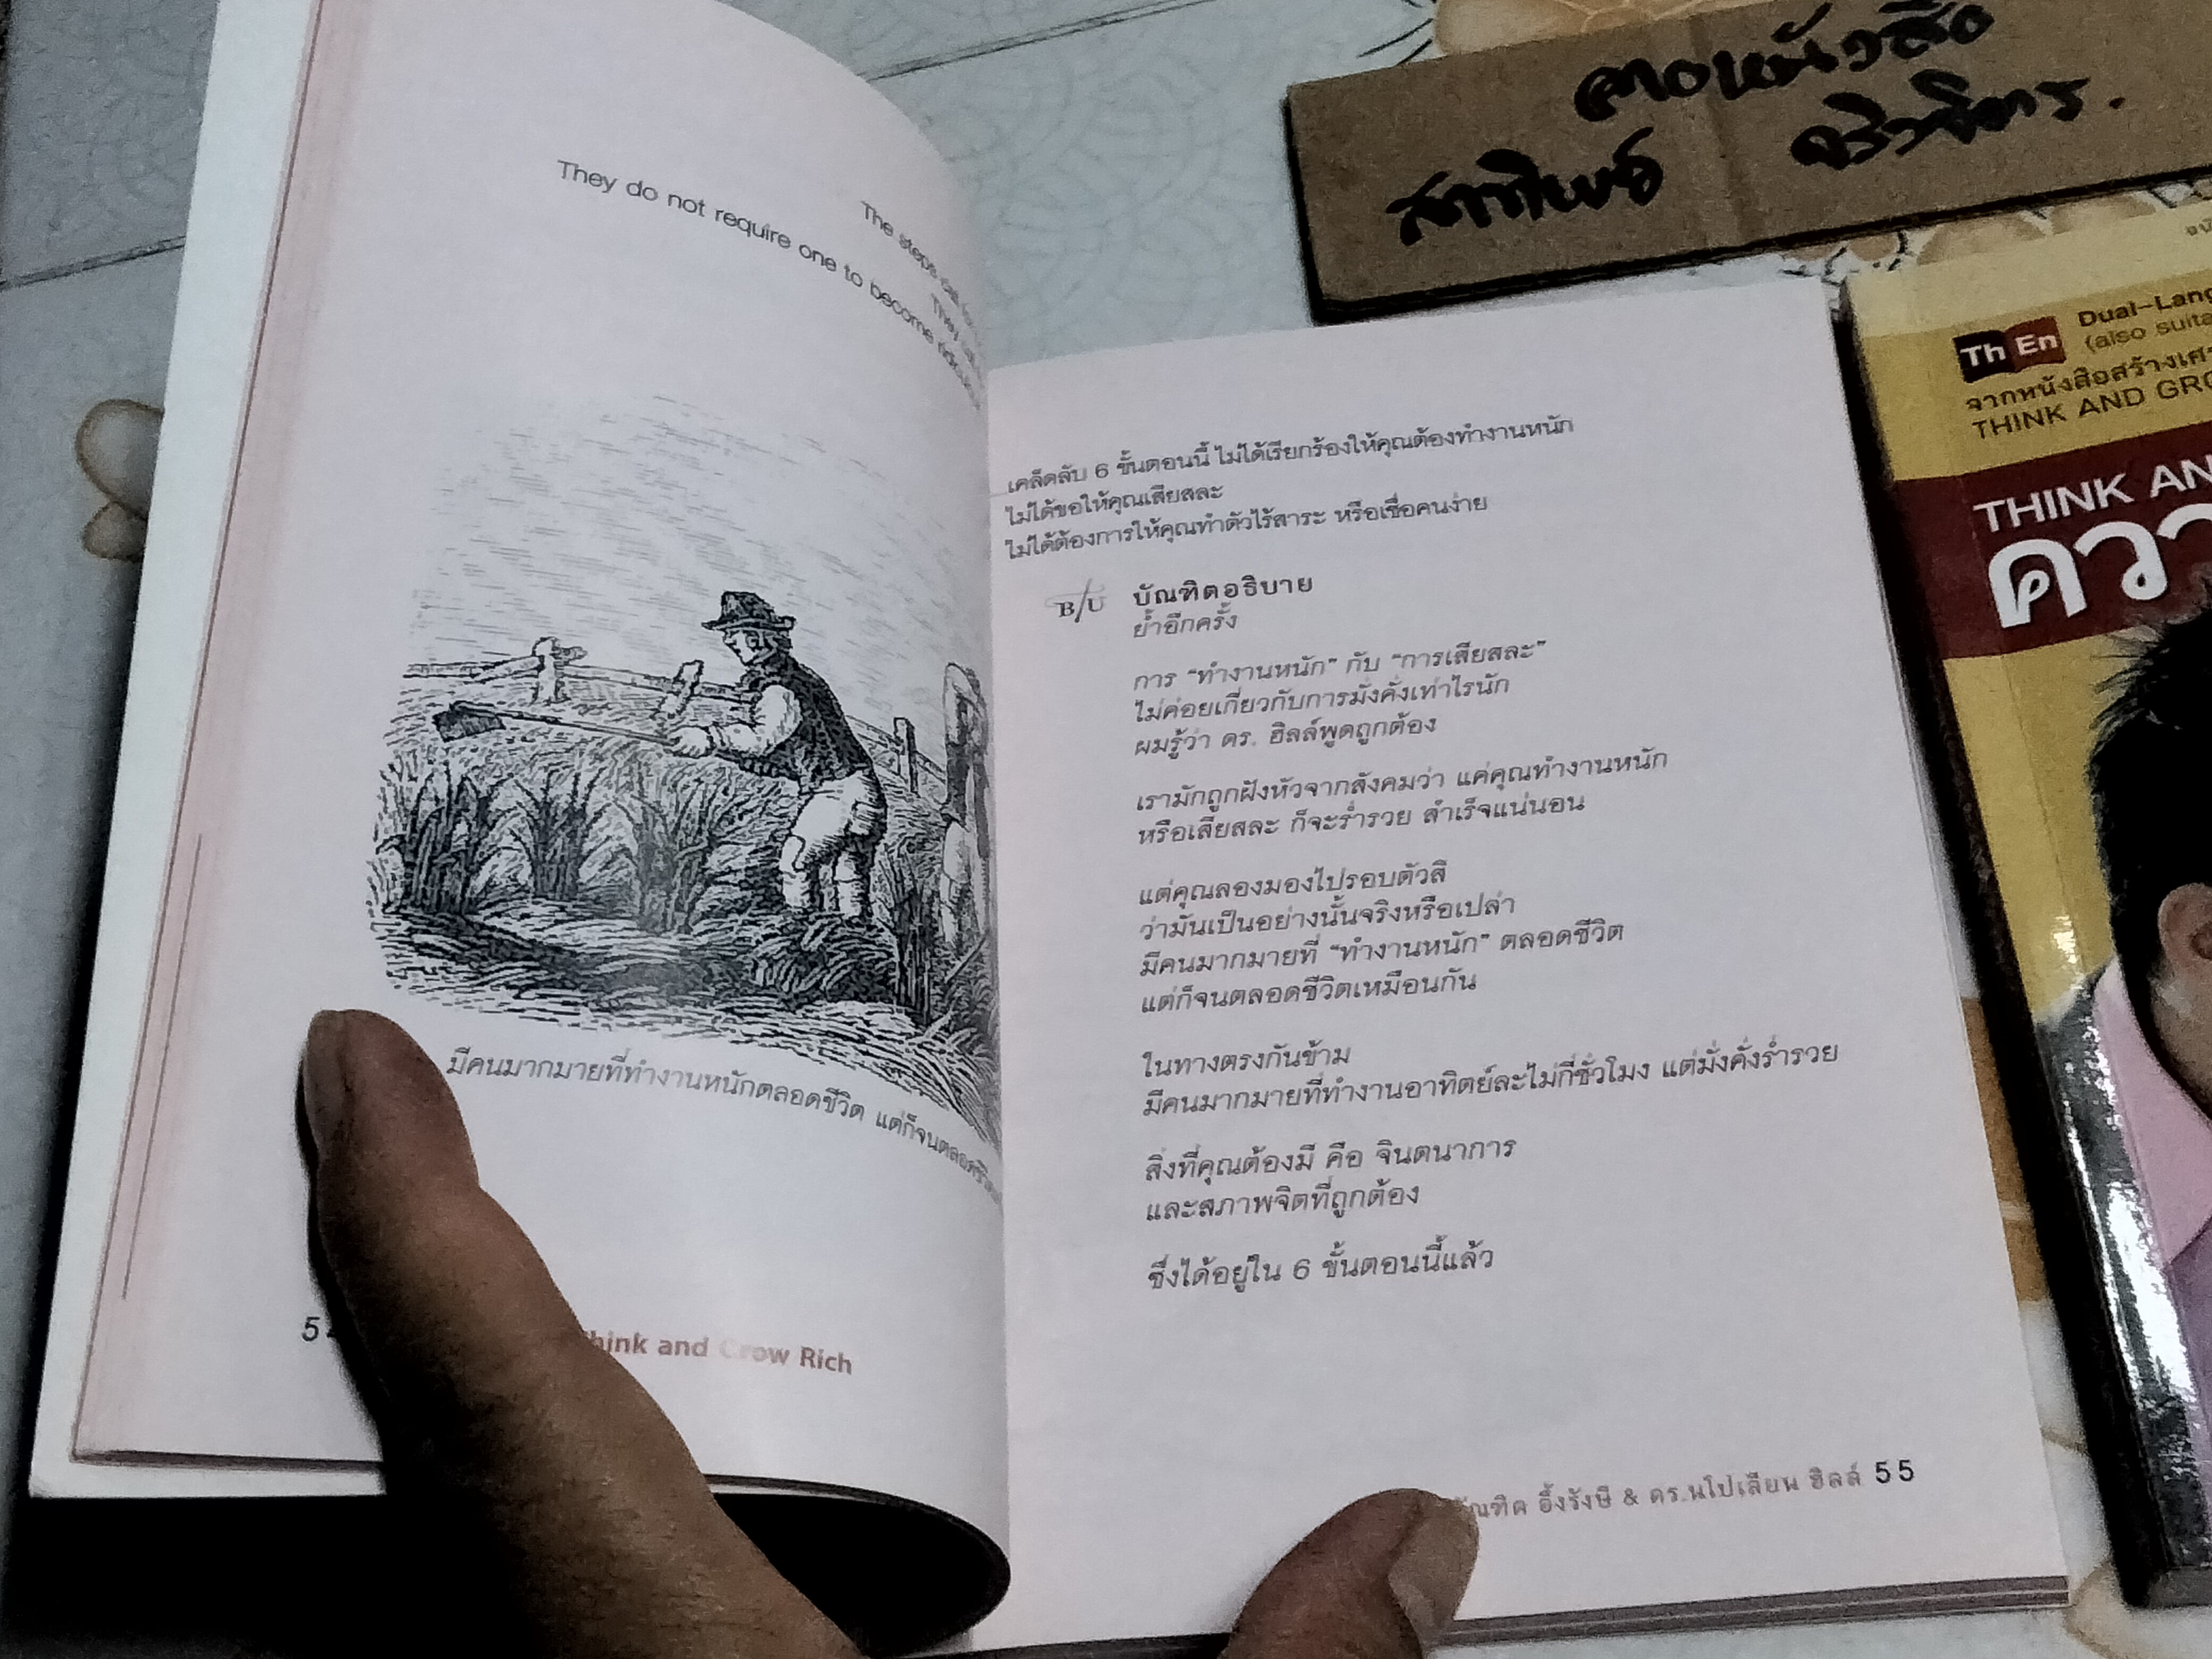 The steps call for
They call
They do not require one to become ridiculous
มีคนมากมายที่ทำงานหนักตลอดชีวิต แต่ก็จนตลอดชีวิต
Think and Grow Rich
เคล็ดลับ 6 ขั้นตอนนี้ ไม่ได้เรียกร้องให้คุณต้องทำงานหนัก
ไม่ได้ขอให้คุณเสียสละ
ไม่ได้ต้องการให้คุณทำตัวไร้สาระ หรือเชื่อคนง่าย
B/U บัณฑิตอธิบาย
ย้ำอีกครั้ง
การ "ทำงานหนัก" กับ "การเสียสละ"
ไม่ค่อยเกี่ยวกับการมั่งคั่งเท่าไรนัก
ผมรู้ว่า ดร. ฮิลล์พูดถูกต้อง
เรามักถูกฝังหัวจากสังคมว่า แค่คุณทำงานหนัก
หรือเสียสละ ก็จะร่ำรวย สำเร็จแน่นอน
แต่คุณลองมองไปรอบตัวสิ
ว่ามันเป็นอย่างนั้นจริงหรือเปล่า
มีคนมากมายที่ "ทำงานหนัก" ตลอดชีวิต
แต่ก็จนตลอดชีวิตเหมือนกัน
ในทางตรงกันข้าม
มีคนมากมายที่ทำงานอาทิตย์ละไม่กี่ชั่วโมง แต่มั่งคั่งร่ำรวย
สิ่งที่คุณต้องมี คือ จินตนาการ
และสภาพจิตที่ถูกต้อง
ซึ่งได้อยู่ใน 6 ขั้นตอนนี้แล้ว
บัณฑิต อึ้งรังษี & ดร.นโปเลียน ฮิลล์ 55
สาทิพย์
Th En Dual-Lang
(also suita
จากหนังสือสร้างเศร
THINK AND GRO
THINK AN
ควา